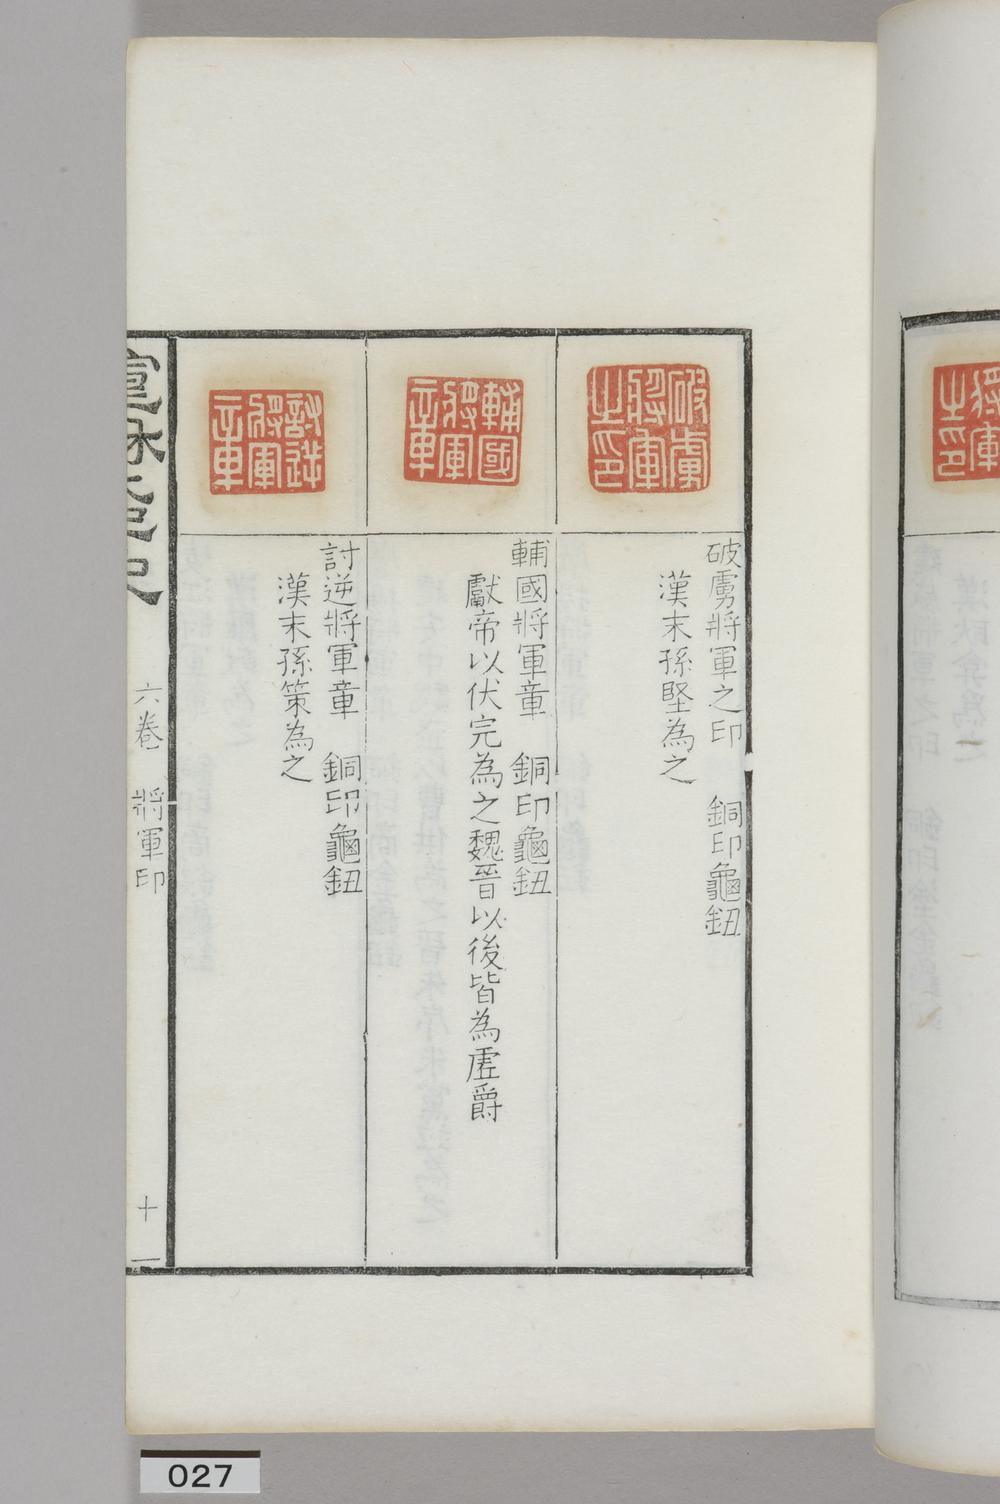 破虜將軍之印
破虜將軍之印　銅印龜鈕
漢末孫堅為之
輔國將軍章
輔國將軍章　銅印龜鈕
獻帝以伏完為之魏晉以後皆為虛爵
討逆將軍章
討逆將軍章　銅印龜鈕
漢末孫策為之
六卷　將軍印
十一
027